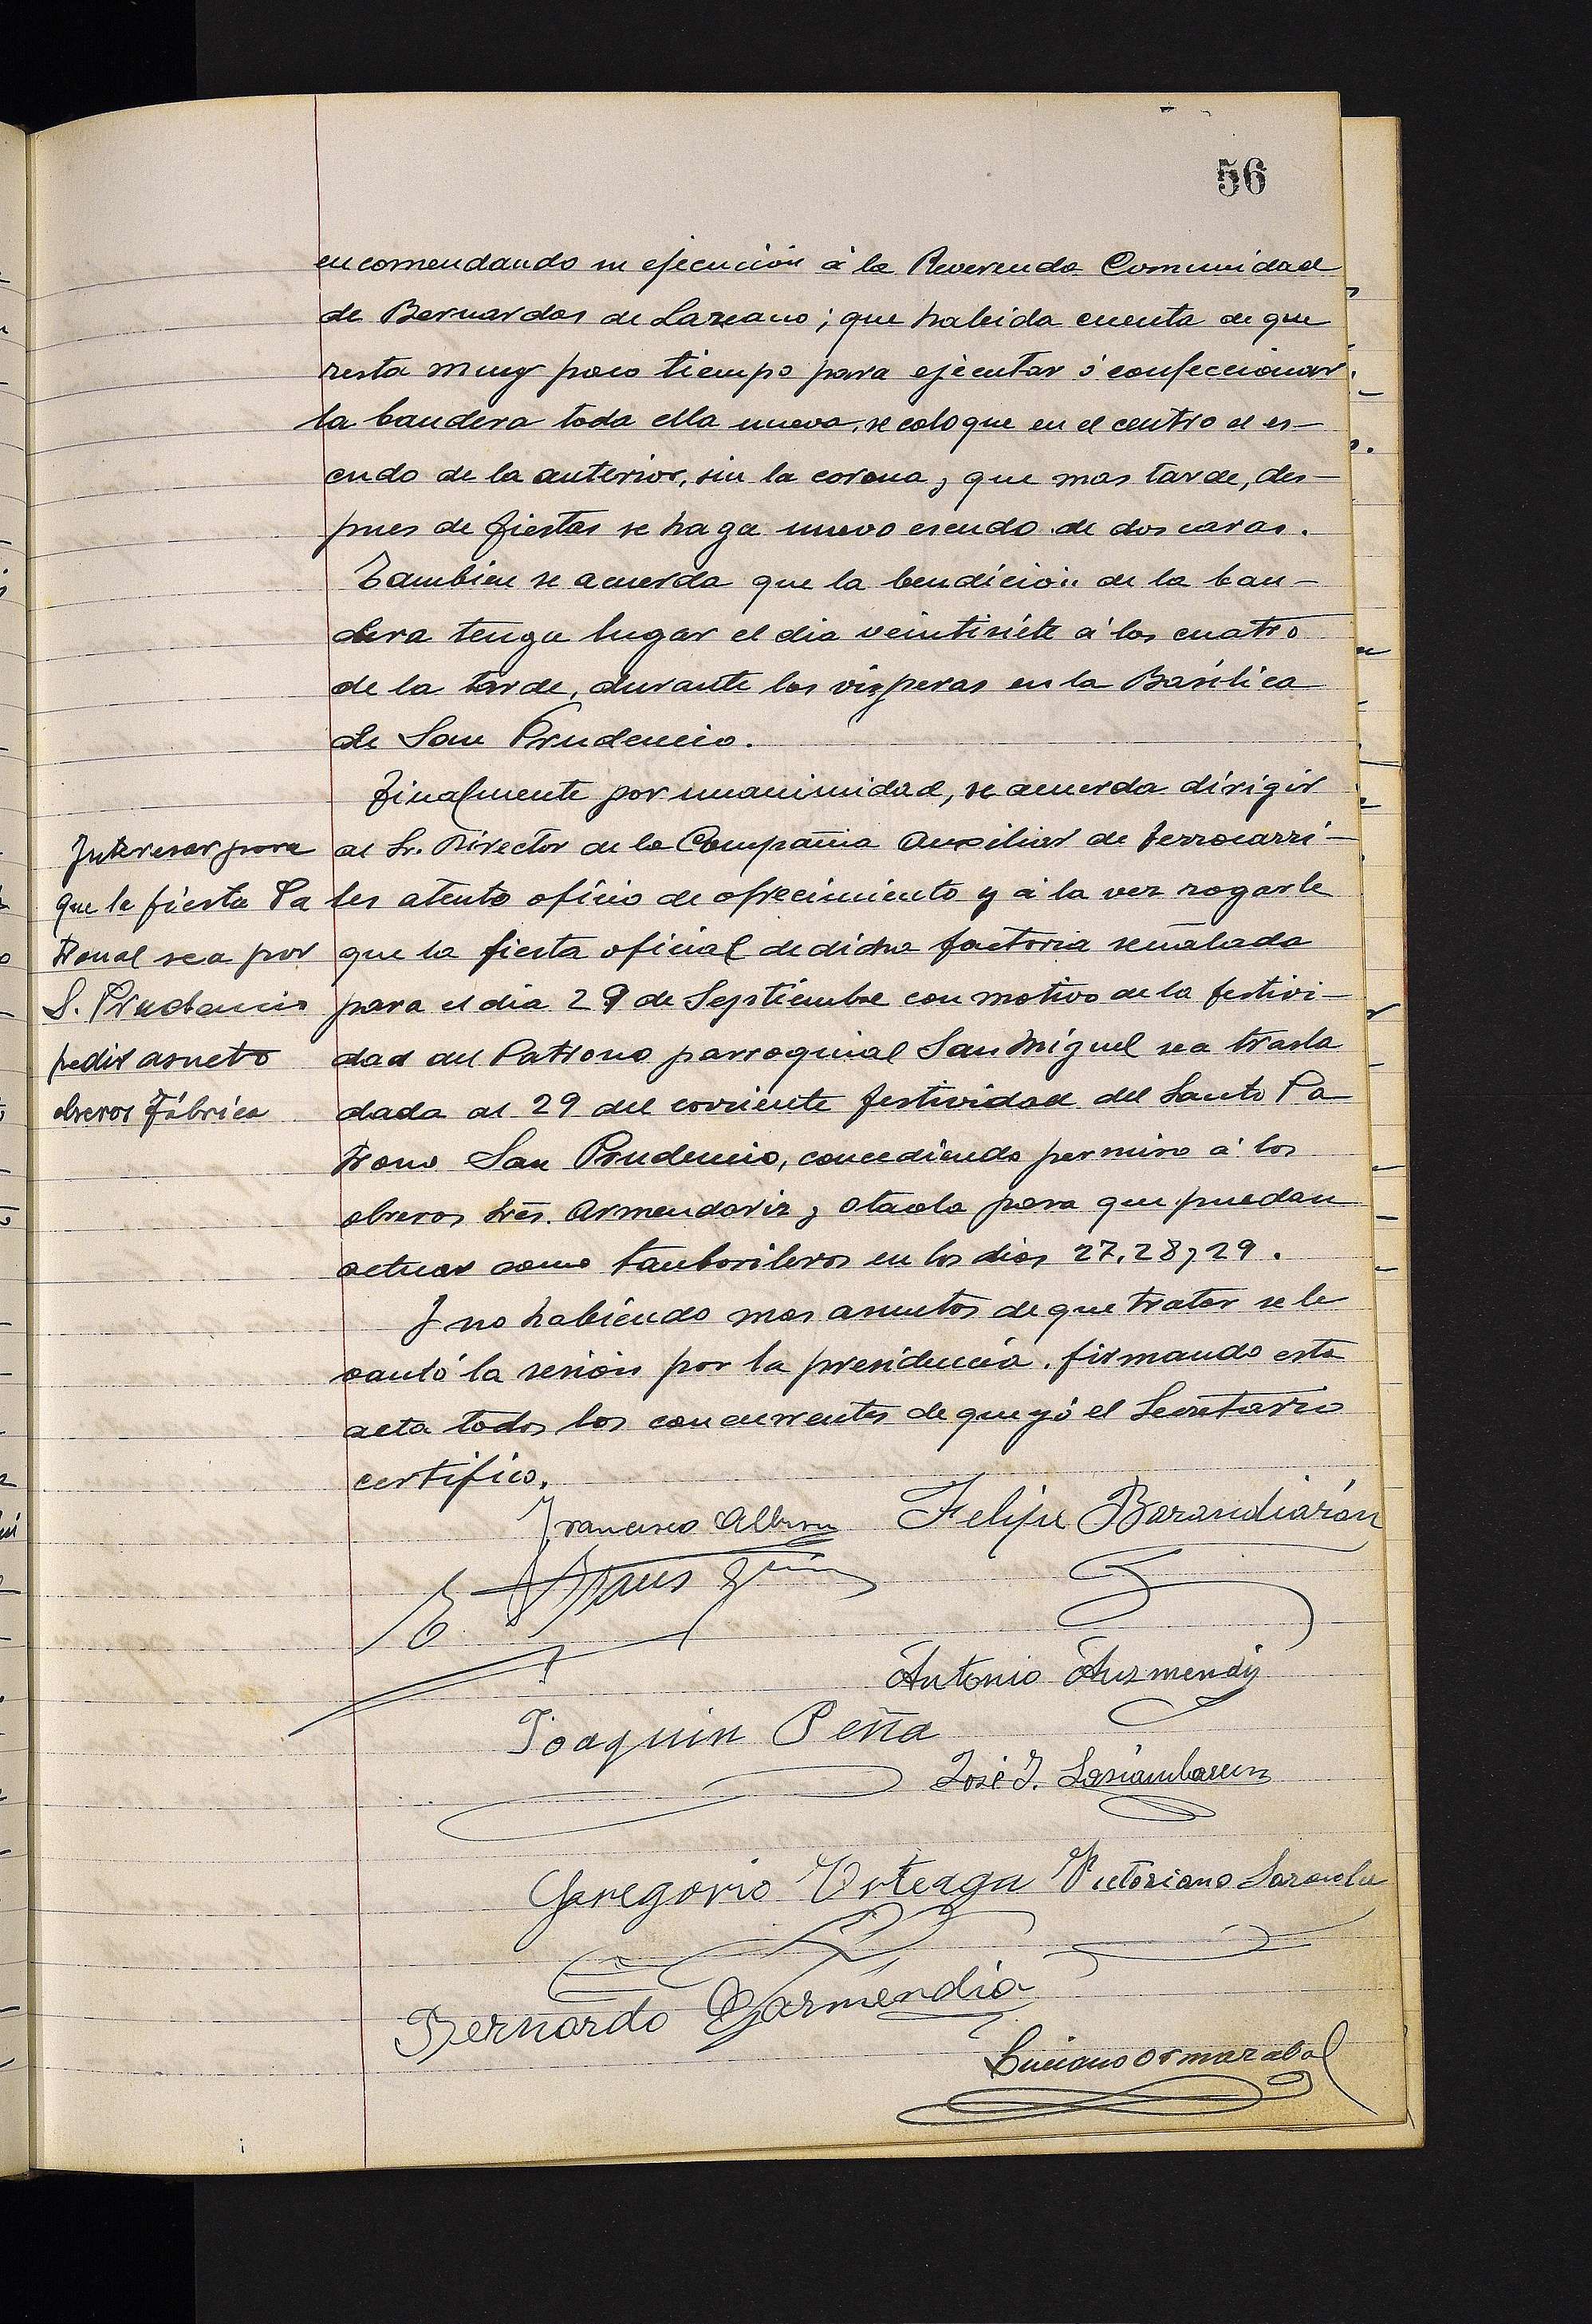 56
encomendando su ejecución á la Reverenda Comunidad
de Bernardas de Lazcano; que habida cuenta de que
resta muy poco tiempo para ejecutar ó confeccionar
la bandera toda ella nueva, se coloque en el centro el es-
cudo de la anterior, sin la corona, y que mas tarde, des-
pues de fiestas se haga nuevo escudo de dos caras.
Tambien se acuerda que la bendición de la ban-
dera tenga lugar el dia veintisiete á las cuatro
de la tarde, durante las visperas en la Basilica
de San Prudencio.
Finalmente por unanimidad, se acuerda dirigir
al Sr. Director de la Compañia Auxiliar de ferrocarri-
les atento oficio de ofrecimiento y á la vez rogarle
que la fiesta oficial de dicha factoria señalada
para el dia 29 de Septiembre con motivo de la festivi-
dad del Patrono parroquial San Miguel sea trasla
dada al 29 del corriente festividad del Santo Pa
trono San Prudencio, concediendo permiso á los
obreros Sres. Armendariz y Otaola para que puedan
actuar como tamborileros en los dias 27, 28 y 29.
Y no habiendo mas asuntos de que tratar se le
vantó la sesión por la presidencia, firmando esta
acta todos los concurrentes de que yó el Secretario
certifico.
Interesar para
que la fiesta Pa
tronal sea por
S. Prudencio
pedir asueto
obreros Fábrica
Francisco Albisu
Felipe Barandiarán
Antonio Auzmendi
Joaquin Peña
José I.
Gregorio Urteaga
Victoriano
Bernardo Garmendia
Luciano Ormazabal